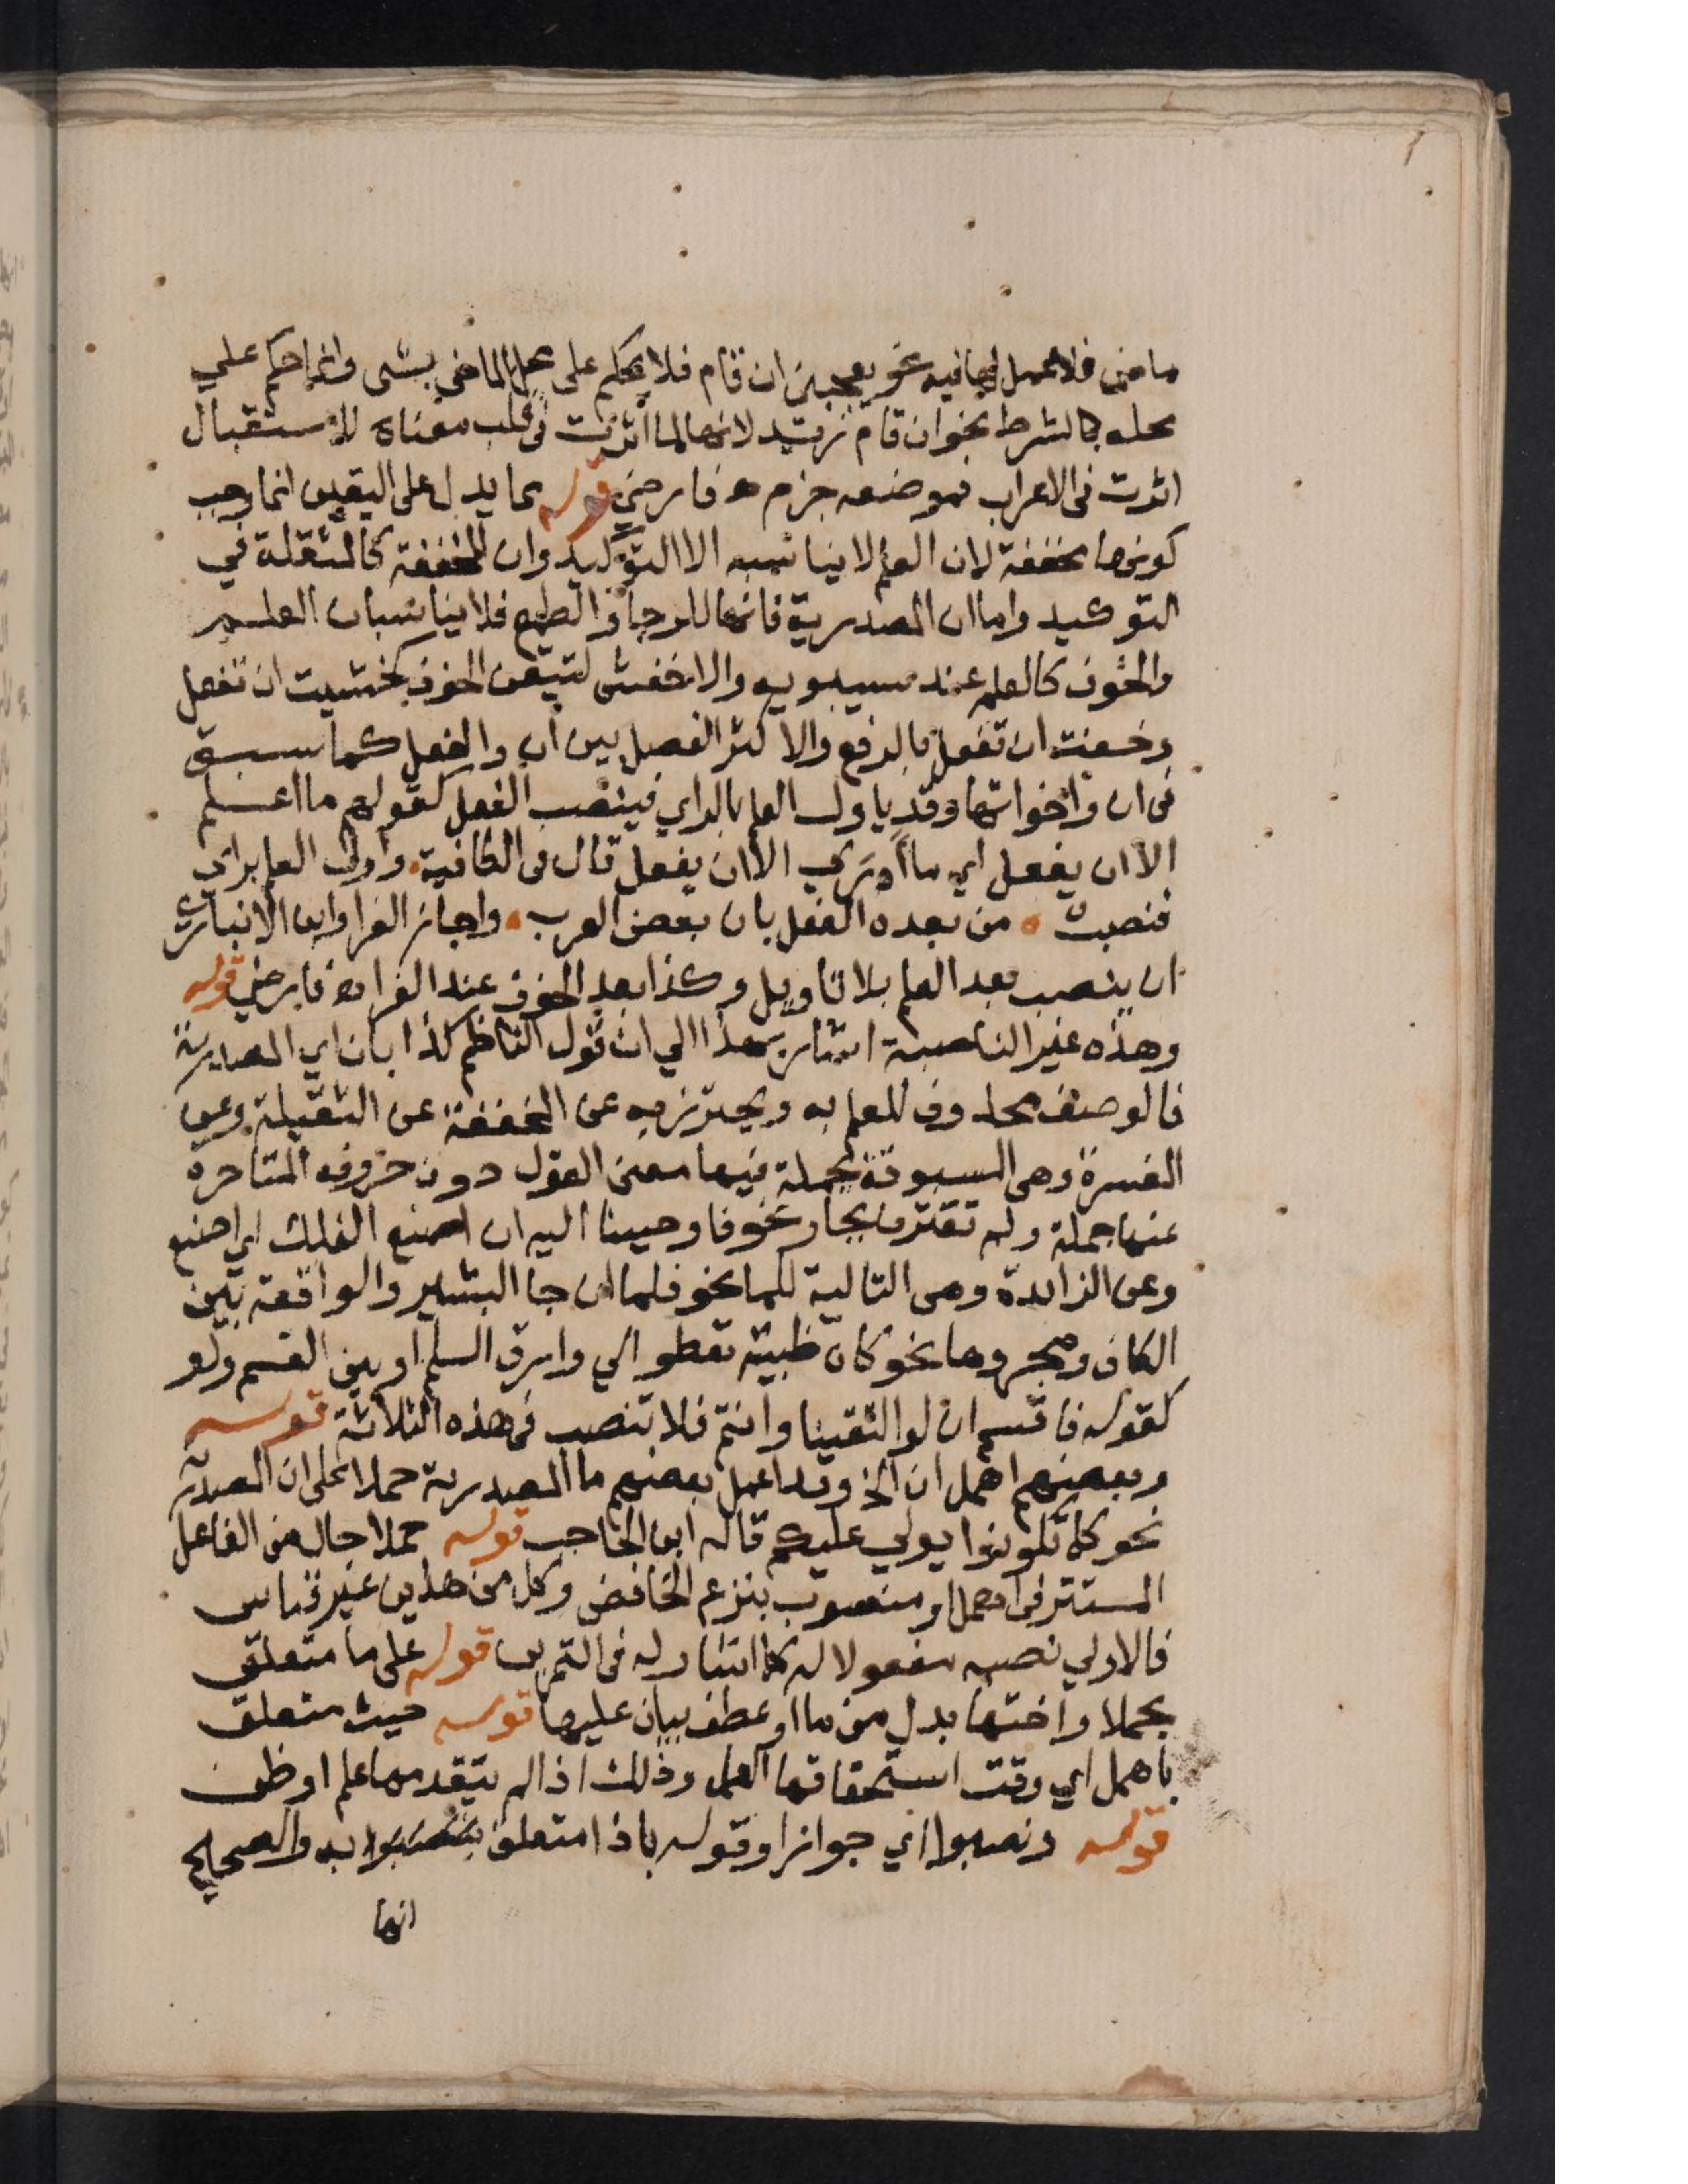 ماض فلا عمل لها فيه نحو يعجبني ان قام فلا يحكم على محل الماضي بشى وانما حكم علي
محله بالشرط نحو ان قام زيد لانها لما اثرت فى قلب معناه للاستقبال
اثرت فى الاعراب فموضعه جزم هـ فارضي قوله مما يدل على اليقين انما وجب
كونها مخففة لان العلم لا يناسبه الا التوكيد وان المخففة كالمثقلة في
التوكيد واما ان المصدرية فانها للرجا والطمع فلا يناسبان العلم
والخوف كالعلم عند سيبويه والاخفش لتيقن الخوف كخشيت ان تفعل
وخفت ان تفعل بالرفع والاكثر الفصل بين ان والفعل كما سبق
فى ان واخواتها وقد ياول العلم بالراي فينصب الفعل كقولهم ما اعلم
الا ان يفعل اي ما ارى الا ان يفعل قال فى الكافية واول العلم براي
فنصبت من بعده الفعل بان بعض العرب واجاز الفرا وابن الانباري
ان ينصب بعد العلم بلا تاويل وكذا بعد الخوف عند الفرا هـ فارضي قوله
وهذه غير الناصبة اشار بهذا الي ان قول الناظم كذا بان اي المصدرية
فالوصف محذوف للعلم به ويحترز به عن المخففة عن الثقيلة وعن
المفسرة وهى المسبوقة بجملة فيها معنى القول دون حروفه المتاخرة
عنها جملة ولم تقترن بجار نحو فاوحينا اليه ان اصنع الفلك اي اصنع
وعن الزائدة وهى التالية للما نحو فلما ان جا البشير والواقعة بين
الكاف ومجرورها نحو كان ظبية تعطو الي وارق السلم او بين القسم ولو
كقوله فاقسم ان لو التقينا وانتم فلا تنصب فى هذه الثلاثة قوله
وبعضهم اهمل ان الخ وقد اعمل بعضهم ما المصدرية حملا على ان المصدرية
نحو كما تكونوا يولي عليكم قاله ابن الحاجب قوله حملا حال من الفاعل
المستتر فى اهمل او منصوب بنزع الخافض وكل من هذين غير قياس
فالاولي نصبه مفعولا له كما اشار له فى التمرين قوله على ما متعلق
بحملا واختها بدل من ما او عطف بيان عليها قوله حيث متعلق
باهمل اي وقت استحقاقها العمل وذلك اذا لم يتقدمها علم او ظن
قوله ونصبوا اي جوازا وقوله باذا متعلق بنصبوا به والصحيح
انها